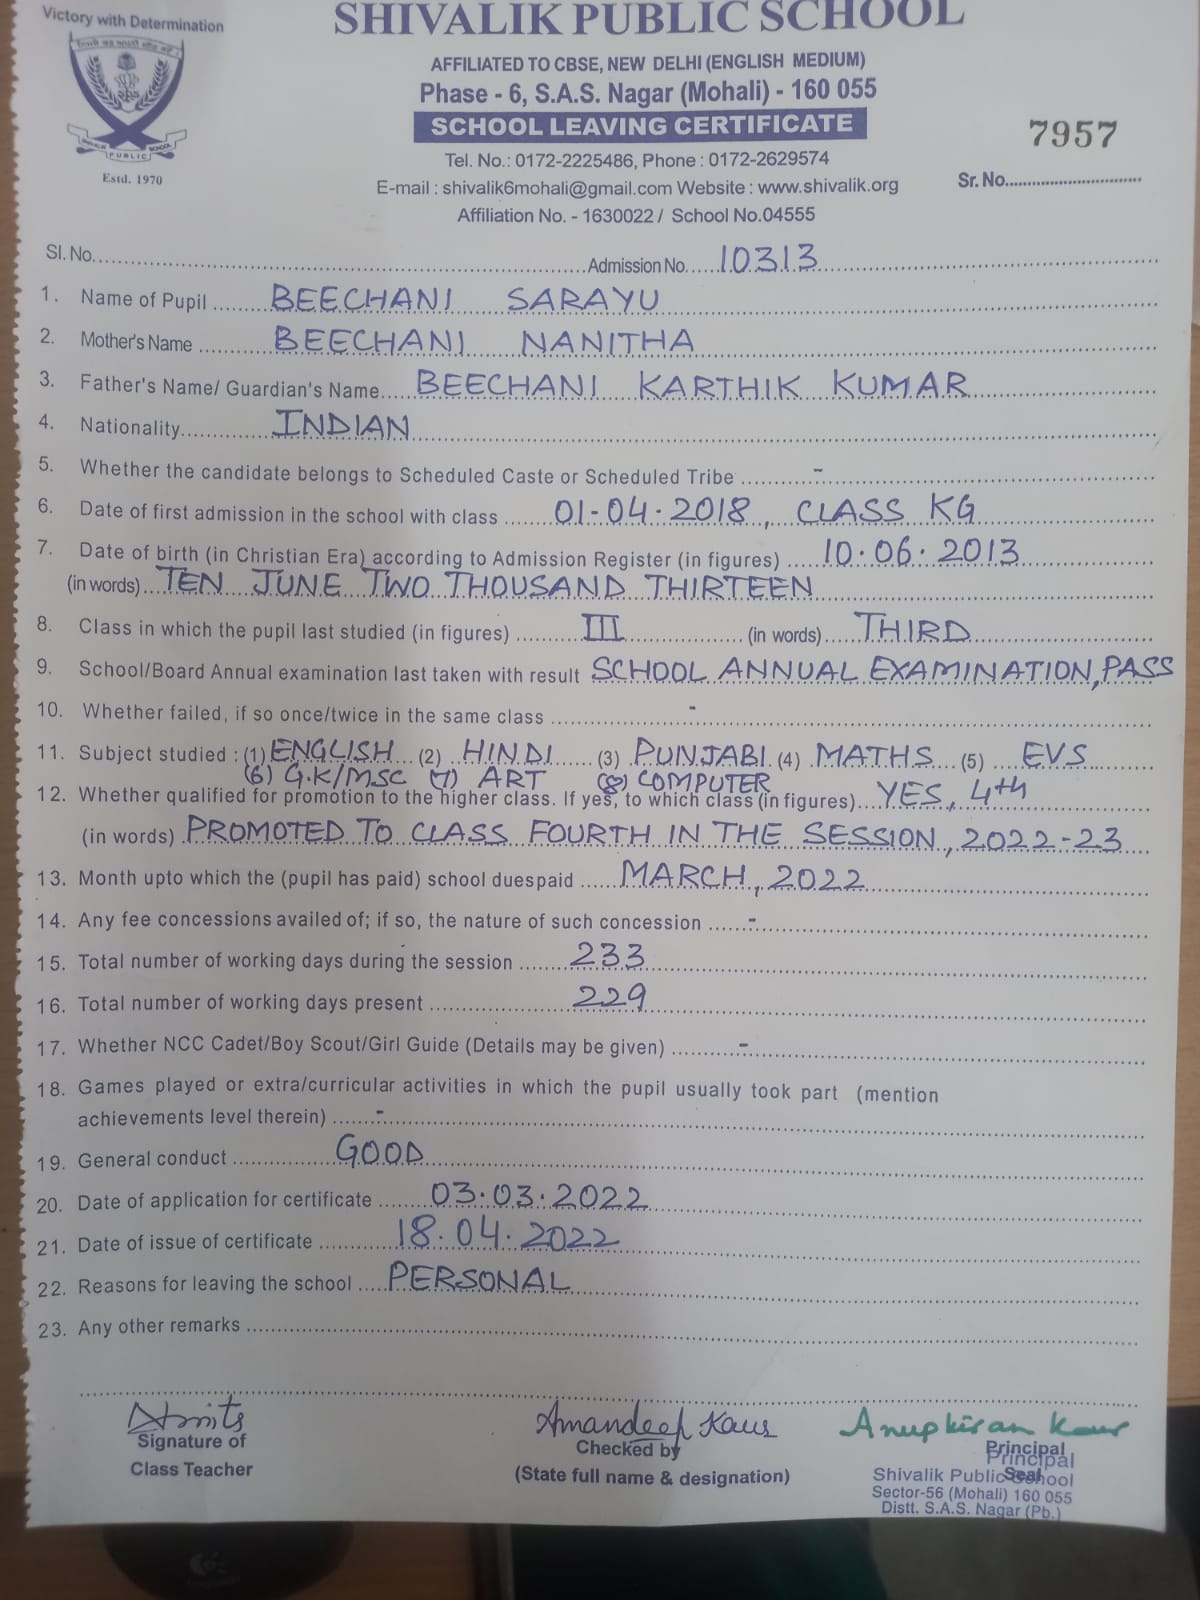 Victory with Determination
SHIVALIK PUBLIC SCHOOL
AFFILIATED TO CBSE, NEW DELHI (ENGLISH MEDIUM)
Phase - 6, S.A.S. Nagar (Mohali) - 160 055
SCHOOL LEAVING CERTIFICATE
7957
Tel. No.: 0172-2225486, Phone : 0172-2629574
SHIVALIK PUBLIC SCHOOL
Estd. 1970
E-mail : shivalik6mohali@gmail.com Website : www.shivalik.org
Sr. No.
Affiliation No. - 1630022 / School No.04555
Sl. No. Admission No. 10313
1. Name of Pupil BEECHANI SARAYU
2. Mother's Name BEECHANI NANITHA
3. Father's Name/ Guardian's Name BEECHANI KARTHIK KUMAR
4. Nationality INDIAN
5. Whether the candidate belongs to Scheduled Caste or Scheduled Tribe -
6. Date of first admission in the school with class 01-04-2018, CLASS KG
7. Date of birth (in Christian Era) according to Admission Register (in figures) 10.06.2013
(in words) TEN JUNE TWO THOUSAND THIRTEEN
8. Class in which the pupil last studied (in figures) III (in words) THIRD
9. School/Board Annual examination last taken with result SCHOOL ANNUAL EXAMINATION, PASS
10. Whether failed, if so once/twice in the same class -
11. Subject studied : (1) ENGLISH (2) HINDI (3) PUNJABI (4) MATHS (5) EVS
(6) G.K/MSC (7) ART (8) COMPUTER
12. Whether qualified for promotion to the higher class. If yes, to which class (in figures) YES, 4th
(in words) PROMOTED TO CLASS FOURTH IN THE SESSION, 2022-23
13. Month upto which the (pupil has paid) school duespaid MARCH, 2022
14. Any fee concessions availed of; if so, the nature of such concession -
15. Total number of working days during the session 233
16. Total number of working days present 229
17. Whether NCC Cadet/Boy Scout/Girl Guide (Details may be given) -
18. Games played or extra/curricular activities in which the pupil usually took part (mention
achievements level therein) -
19. General conduct GOOD
20. Date of application for certificate 03.03.2022
21. Date of issue of certificate 18.04.2022
22. Reasons for leaving the school PERSONAL
23. Any other remarks
Amandeep Kaur
Anupkiran Kaur
Signature of
Class Teacher
Checked by
(State full name & designation)
Principal
Seal
Principal
Shivalik Public School
Sector-56 (Mohali) 160 055
Distt. S.A.S. Nagar (Pb.)